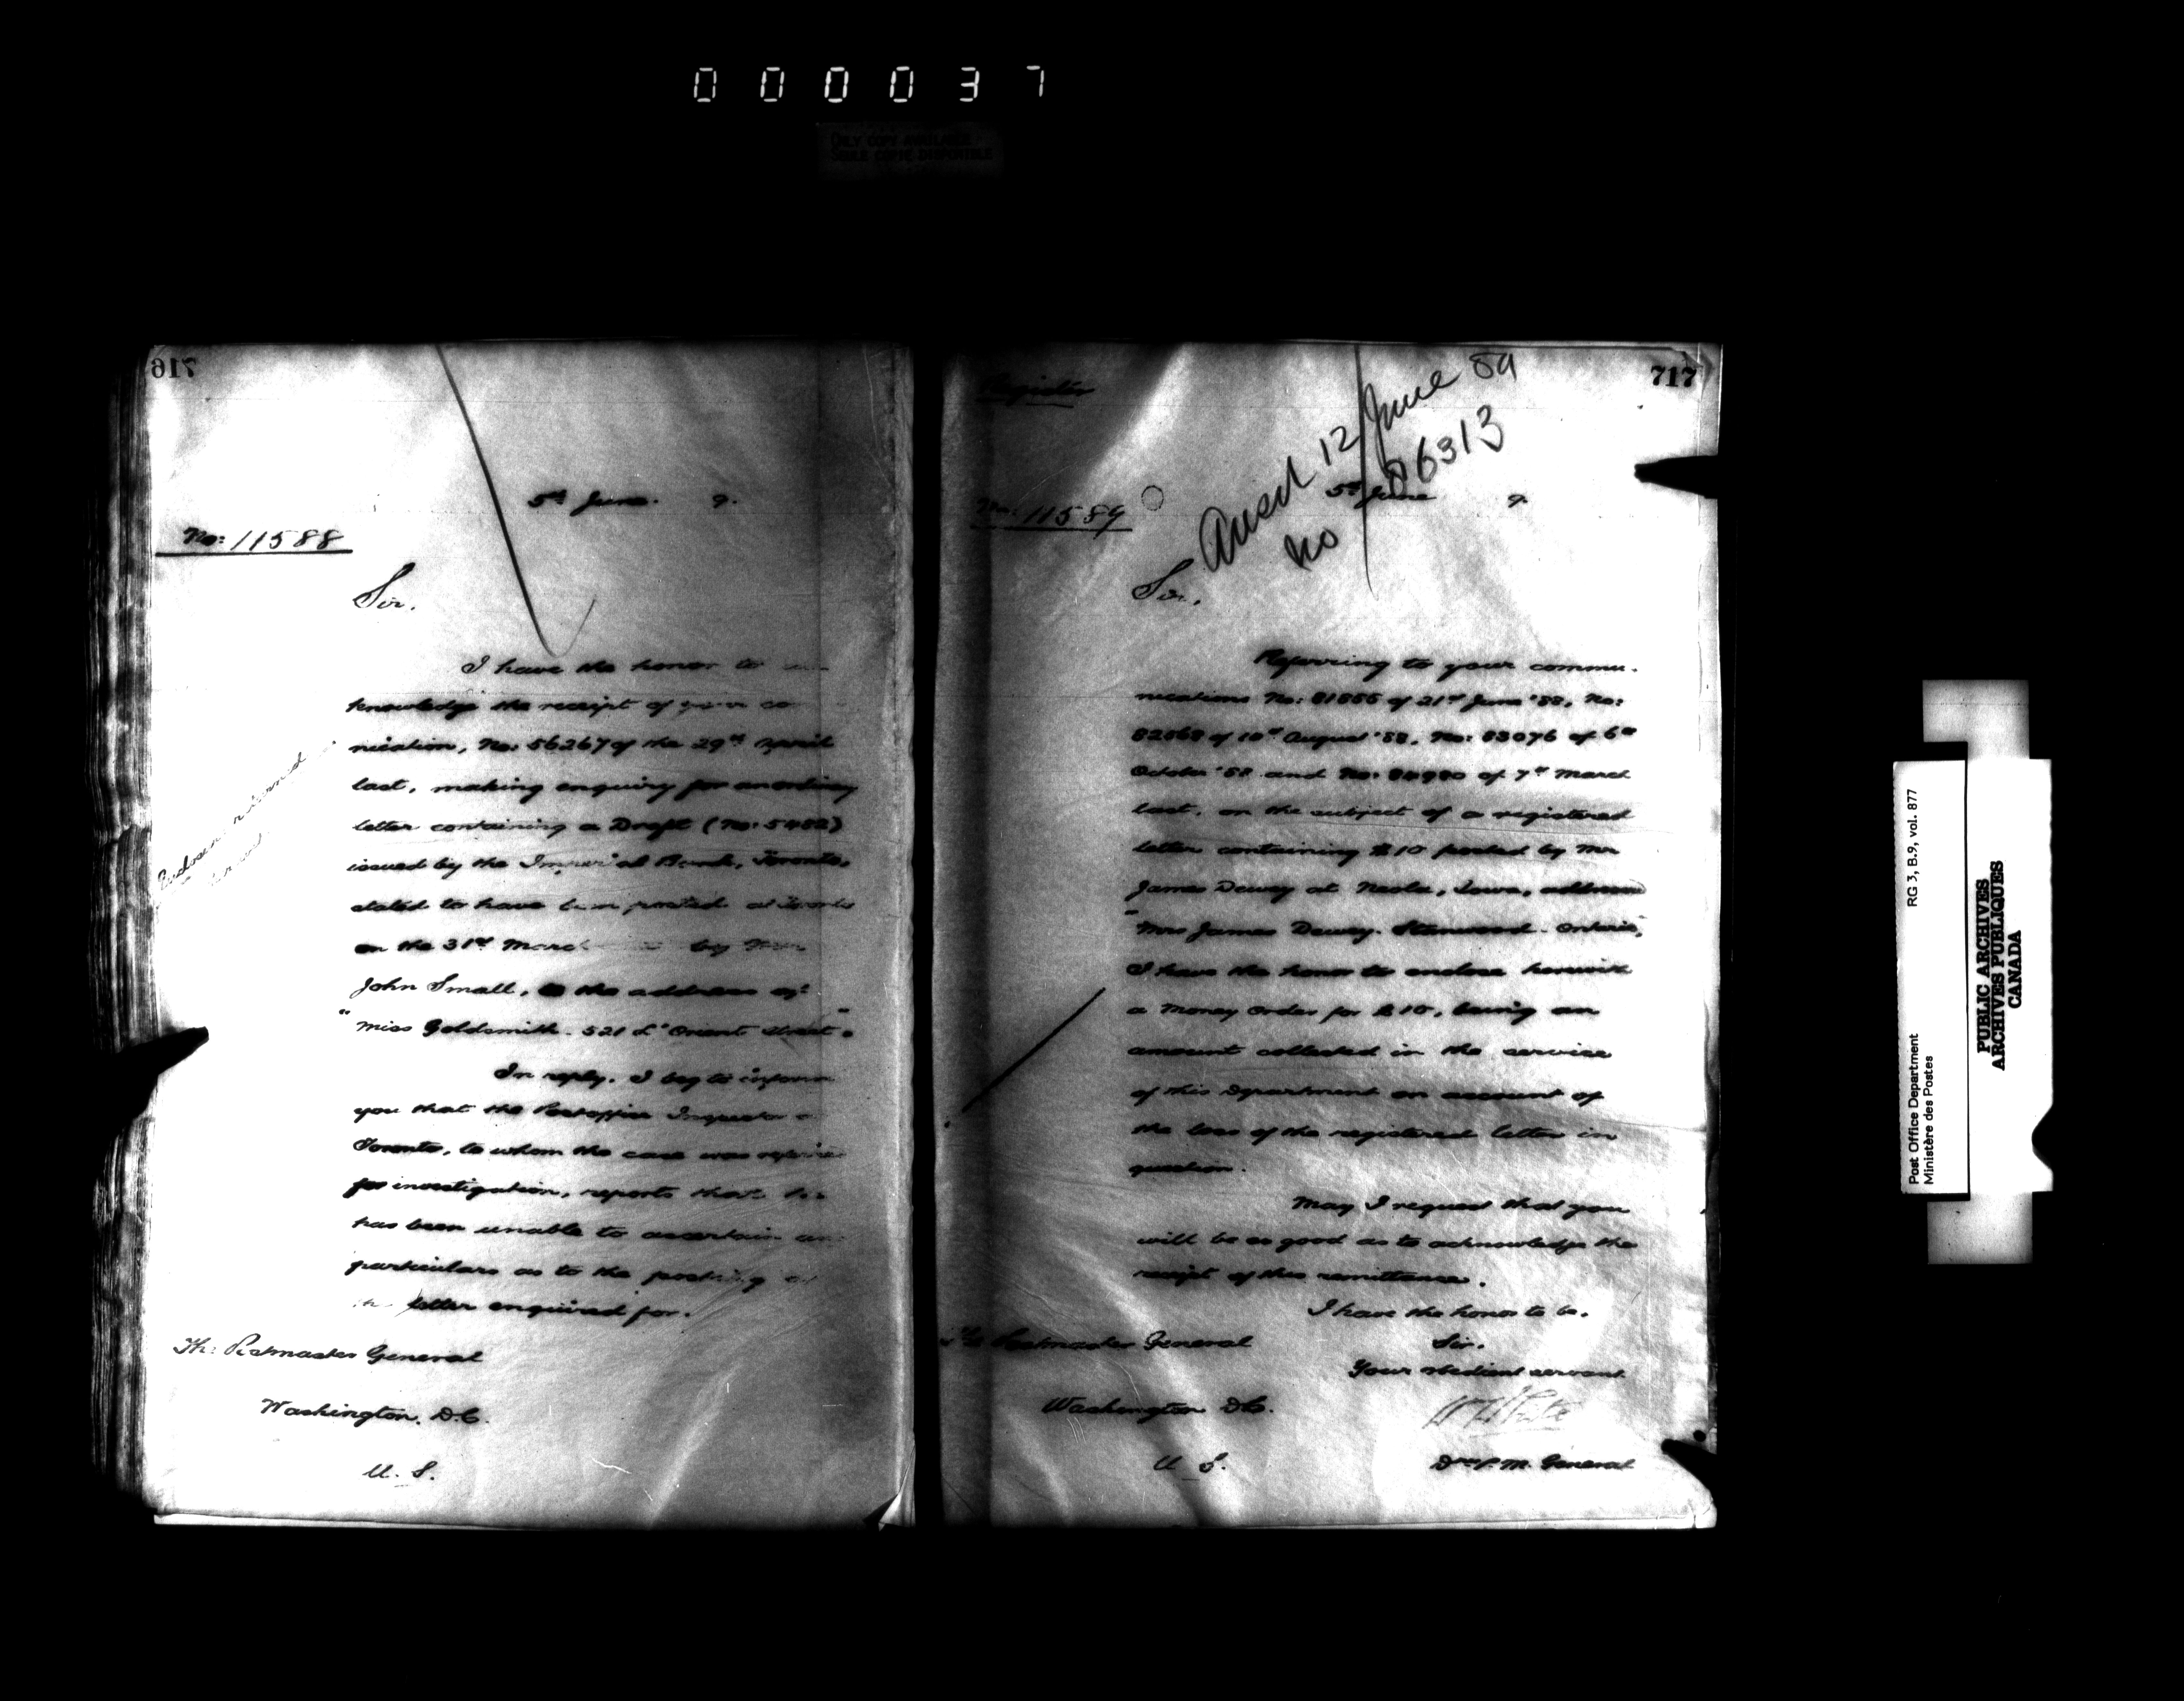 000037
ONLY COPY AVAILABLE
SEULE COPIE DISPONIBLE
716
5th June. 9.
No: 11588
Sir.
I have the honor to
knowledge the receipt of your co
nication, No: 56267 of the 29th April
last, making enquiry for an ordinary
letter containing a Draft (No: 5482)
issued by the Imperial Bank, Toronto,
stated to have been posted at Toronto
on the 31st March by
John Small, to the address of:
"Miss Goldsmith. 521 L'Orient Street"
In reply, I beg to inform
you that the Postoffice Inspector
Toronto, to whom the case was referred
for investigation, reports that he
has been unable to ascertain
particulars as to the posting of
the letter enquired for.
The Postmaster General
Washington. D.C.
U. S.
Enclosure returned
717
Register
Ansd 12 June 89
No 86313
5th June 9.
No: 11589
Sir,
Referring to your commu-
nications No: 81855 of 21st June '88, No:
82868 of 10th August '88, No: 83076 of 6th
October '88 and No: 84980 of 7th March
last, on the subject of a registered
letter containing $10 posted by Mr
James Dewey at Neola, Iowa, address
"Mrs James Dewey. Stanwood. Ontario,"
I have the honor to enclose herewith
a Money Order for $10, being an
amount collected in the service
of this Department on account of
the loss of the registered letter in
question.
May I request that you
will be so good as to acknowledge the
receipt of this remittance.
I have the honor to be.
Sir.
Your obedient servant.
The Postmaster General
Washington D.C.
U. S.
W H White
Dy P. M. General
Post Office Department
Ministère des Postes
RG 3, B.9, vol. 877
PUBLIC ARCHIVES
ARCHIVES PUBLIQUES
CANADA